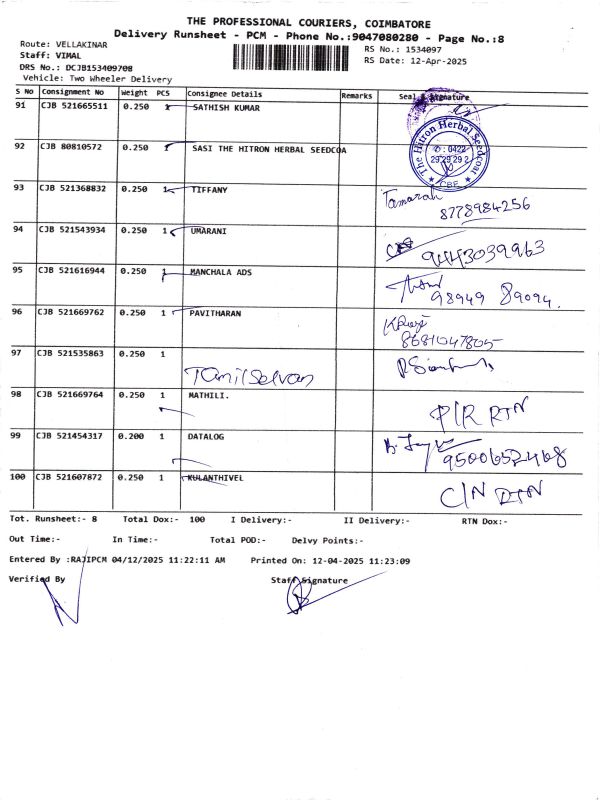 THE PROFESSIONAL COURIERS, COIMBATORE
Delivery Runsheet - PCM - Phone No.:9047080280 - Page No.:8
Route: VELLAKINAR
RS No.: 1534097
Staff: VIMAL
RS Date: 12-Apr-2025
DRS No.: DCJB153409708
Vehicle: Two Wheeler Delivery
S No Consignment No Weight PCS Consignee Details Remarks Seal & Signature
91 CJB 521665511 0.250 1 SATHISH KUMAR
92 CJB 80810572 0.250 1 SASI THE HITRON HERBAL SEEDCOA
The Hitron Herbal Seedcoat
0422
29 29 29 2
CBE
93 CJB 521368832 0.250 1 TIFFANY
Tamarah
8778984256
94 CJB 521543934 0.250 1 UMARANI
9443039963
95 CJB 521616944 0.250 1 MANCHALA ADS
98949 89094.
96 CJB 521669762 0.250 1 PAVITHARAN
8681047805
97 CJB 521535863 0.250 1
Tamilselvan
98 CJB 521669764 0.250 1 MATHILI.
P/R RTN
99 CJB 521454317 0.200 1 DATALOG
9500652468
100 CJB 521607872 0.250 1 KULANTHIVEL
C/N RTN
Tot. Runsheet:- 8 Total Dox:- 100 I Delivery:- II Delivery:- RTN Dox:-
Out Time:- In Time:- Total POD:- Delvy Points:-
Entered By :RAJIPCM 04/12/2025 11:22:11 AM Printed On: 12-04-2025 11:23:09
Verified By Staff Signature